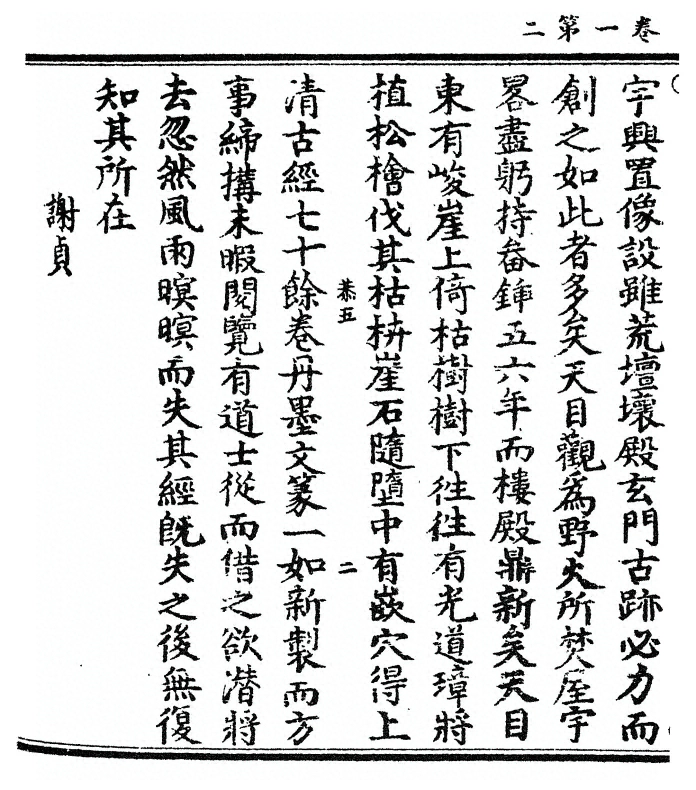 卷一第二
宇興置像設雖荒壇壞殿玄門古跡必力而
創之如此者多矣天目觀為野火所焚屋宇
畧盡躬持畚鍤五六年而樓殿鼎新矣天目
東有峻崖上倚枯樹樹下徃徃有光道璋將
植松檜伐其枯枿崖石隨墮中有嵌穴得上
恭五 二
清古經七十餘卷丹墨文篆一如新製而方
事締搆未暇閱覽有道士從而借之欲潛將
去忽然風雨暝暝而失其經旣失之後無復
知其所在
謝貞